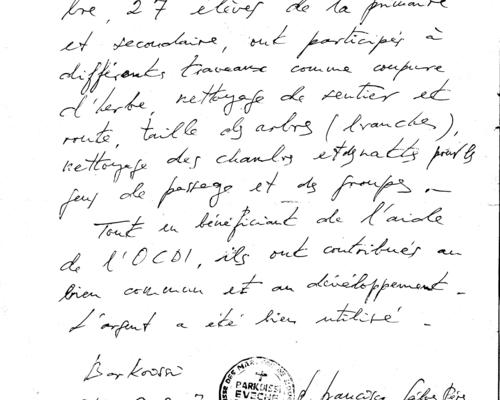 bre, 27 élèves de la primaire
et secondaire, ont participés à
différents travaux comme coupure
d'herbe, nettoyage de sentier et
route, taille des arbres (branches),
nettoyage des chambres et des nattes pour les
gens de passage et des groupes.
Tout en bénéficiant de l'aide
de l'OCDI, ils ont contribués au
bien commun et au développement.
L'argent a été bien utilisé.
Barkoissi
PARKOISSI
EVECHE